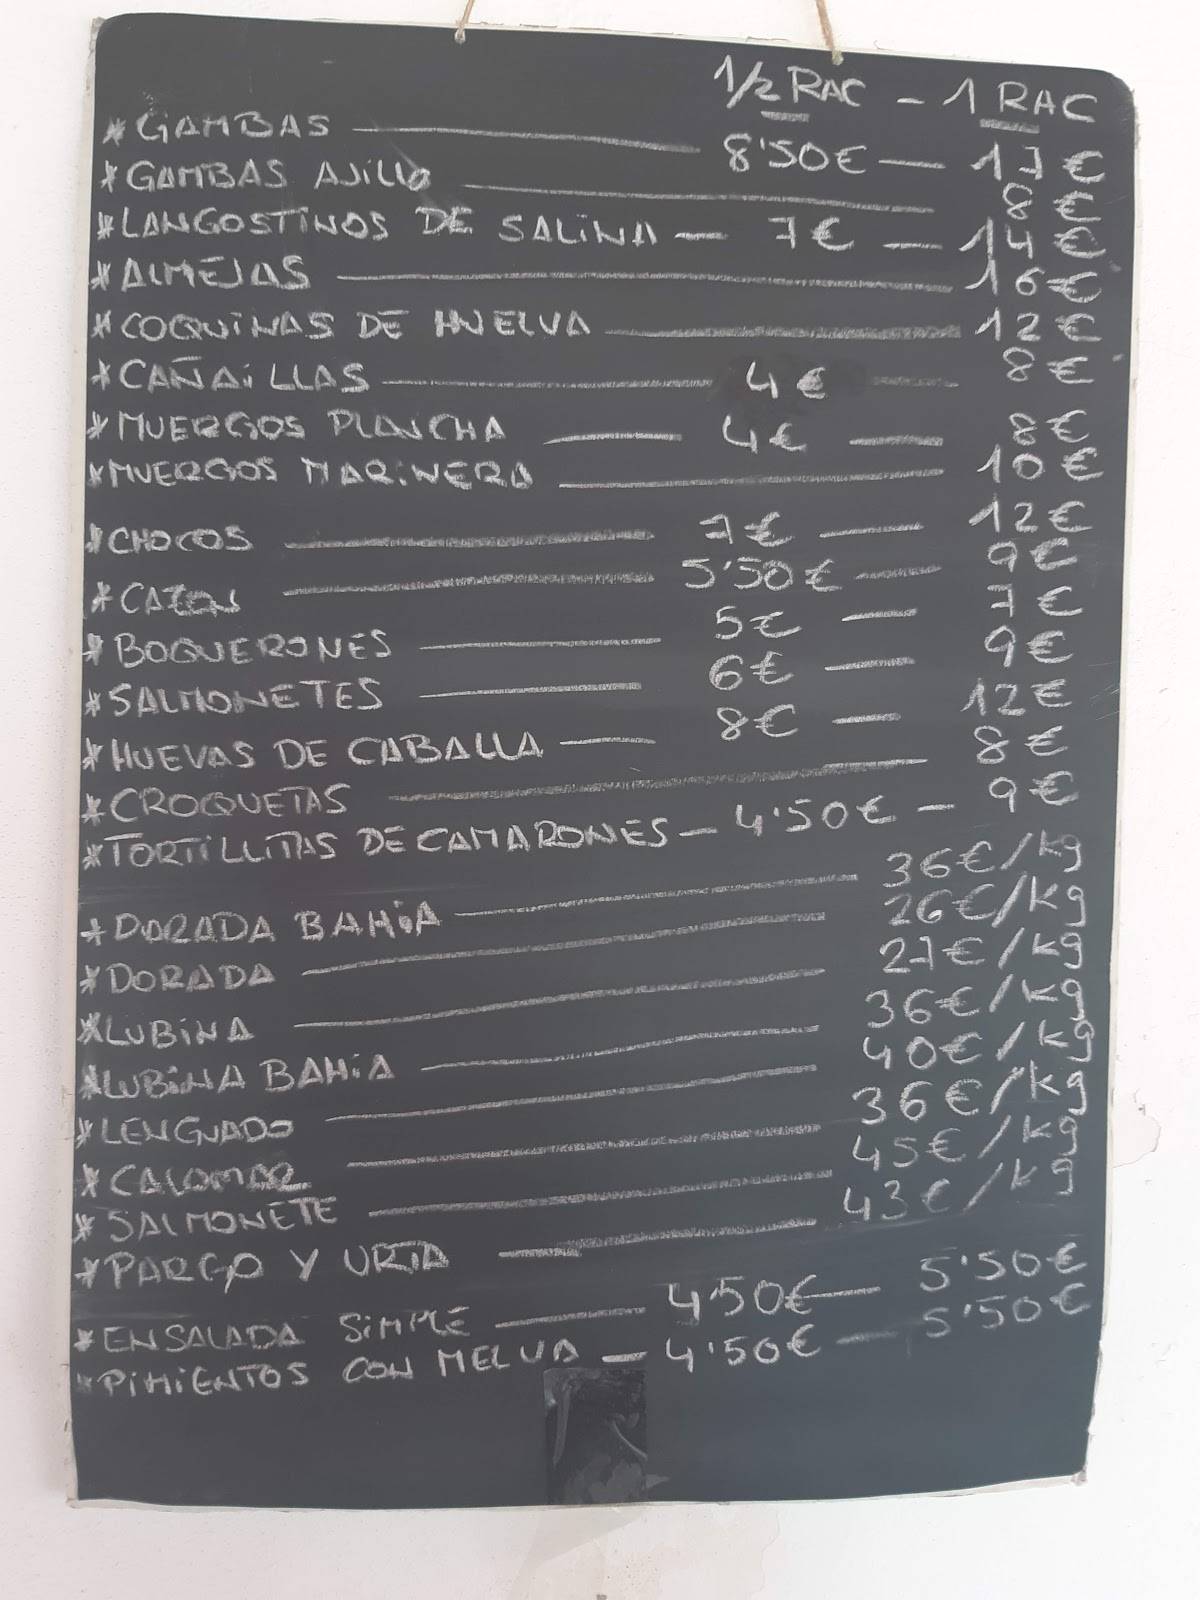 1/2 RAC - 1 RAC
* GAMBAS — 8'50€ — 17€
* GAMBAS AJILLO — 8€
* LANGOSTINOS DE SALINA — 7€ — 14€
* ALMEJAS — 16€
* COQUINAS DE HUELVA — 12€
* CAÑAILLAS — 4€ — 8€
* MUERGOS PLANCHA — 4€ — 8€
* MUERGOS MARINERA — 10€
* CHOCOS — 7€ — 12€
* CAZON — 5'50€ — 9€
* BOQUERONES — 5€ — 7€
* SALMONETES — 6€ — 9€
* HUEVAS DE CABALLA — 8€ — 12€
* CROQUETAS — 8€
* TORTILLITAS DE CAMARONES — 4'50€ — 9€
* DORADA BAHIA — 36€/kg
* DORADA — 26€/kg
* LUBINA — 27€/kg
* LUBINA BAHIA — 36€/kg
* LENGUADO — 40€/kg
* CALAMAR — 36€/kg
* SALMONETE — 45€/kg
* PARGO Y URTA — 43€/kg
* ENSALADA SIMPLE — 4'50€ — 5'50€
* PIMIENTOS CON MELVA — 4'50€ — 5'50€